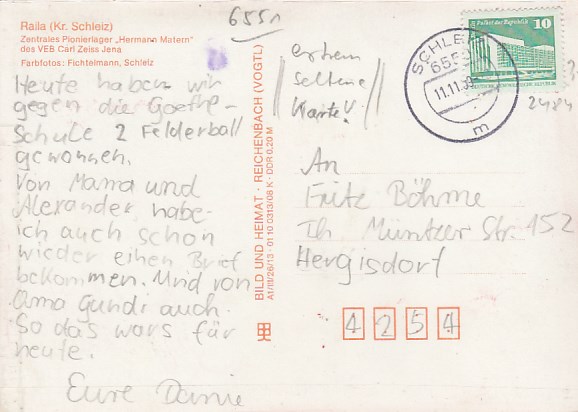 Raila (Kr. Schleiz)
Zentrales Pionierlager „Hermann Matern"
des VEB Carl Zeiss Jena
Farbfotos: Fichtelmann, Schleiz
6551
Heute haben wir
gegen die Goethe-
Schule 2 Felderball
gewonnen.
Von Mama und
Alexander habe
ich auch schon
wieder einen Brief
bekommen. Und von
Oma Gundi auch.
So das wars für
heute.
Eure
BILD UND HEIMAT · REICHENBACH (VOGTL)
A1/III/26/13 · 01 10 0313/08 K · DDR 0,20 M
extrem
seltene
Karte!
SCHLEIZ
11.11.
m
Palast der Republik
10
2484
An
Fritz Böhme
Th. Müntzer Str. 152
Hergisdorf
4254